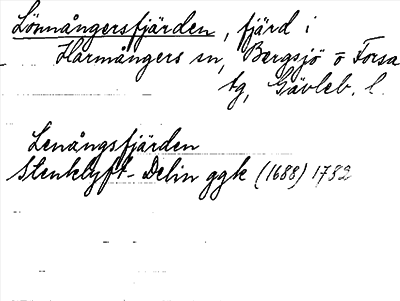 Lönnångersfjärden, fjärd i
Harmångers sn, Bergsjö o Forsa
tg, Gävleb. l.
Lenångsfjärden
Stenklyft-Delin ggk (1688) 1782